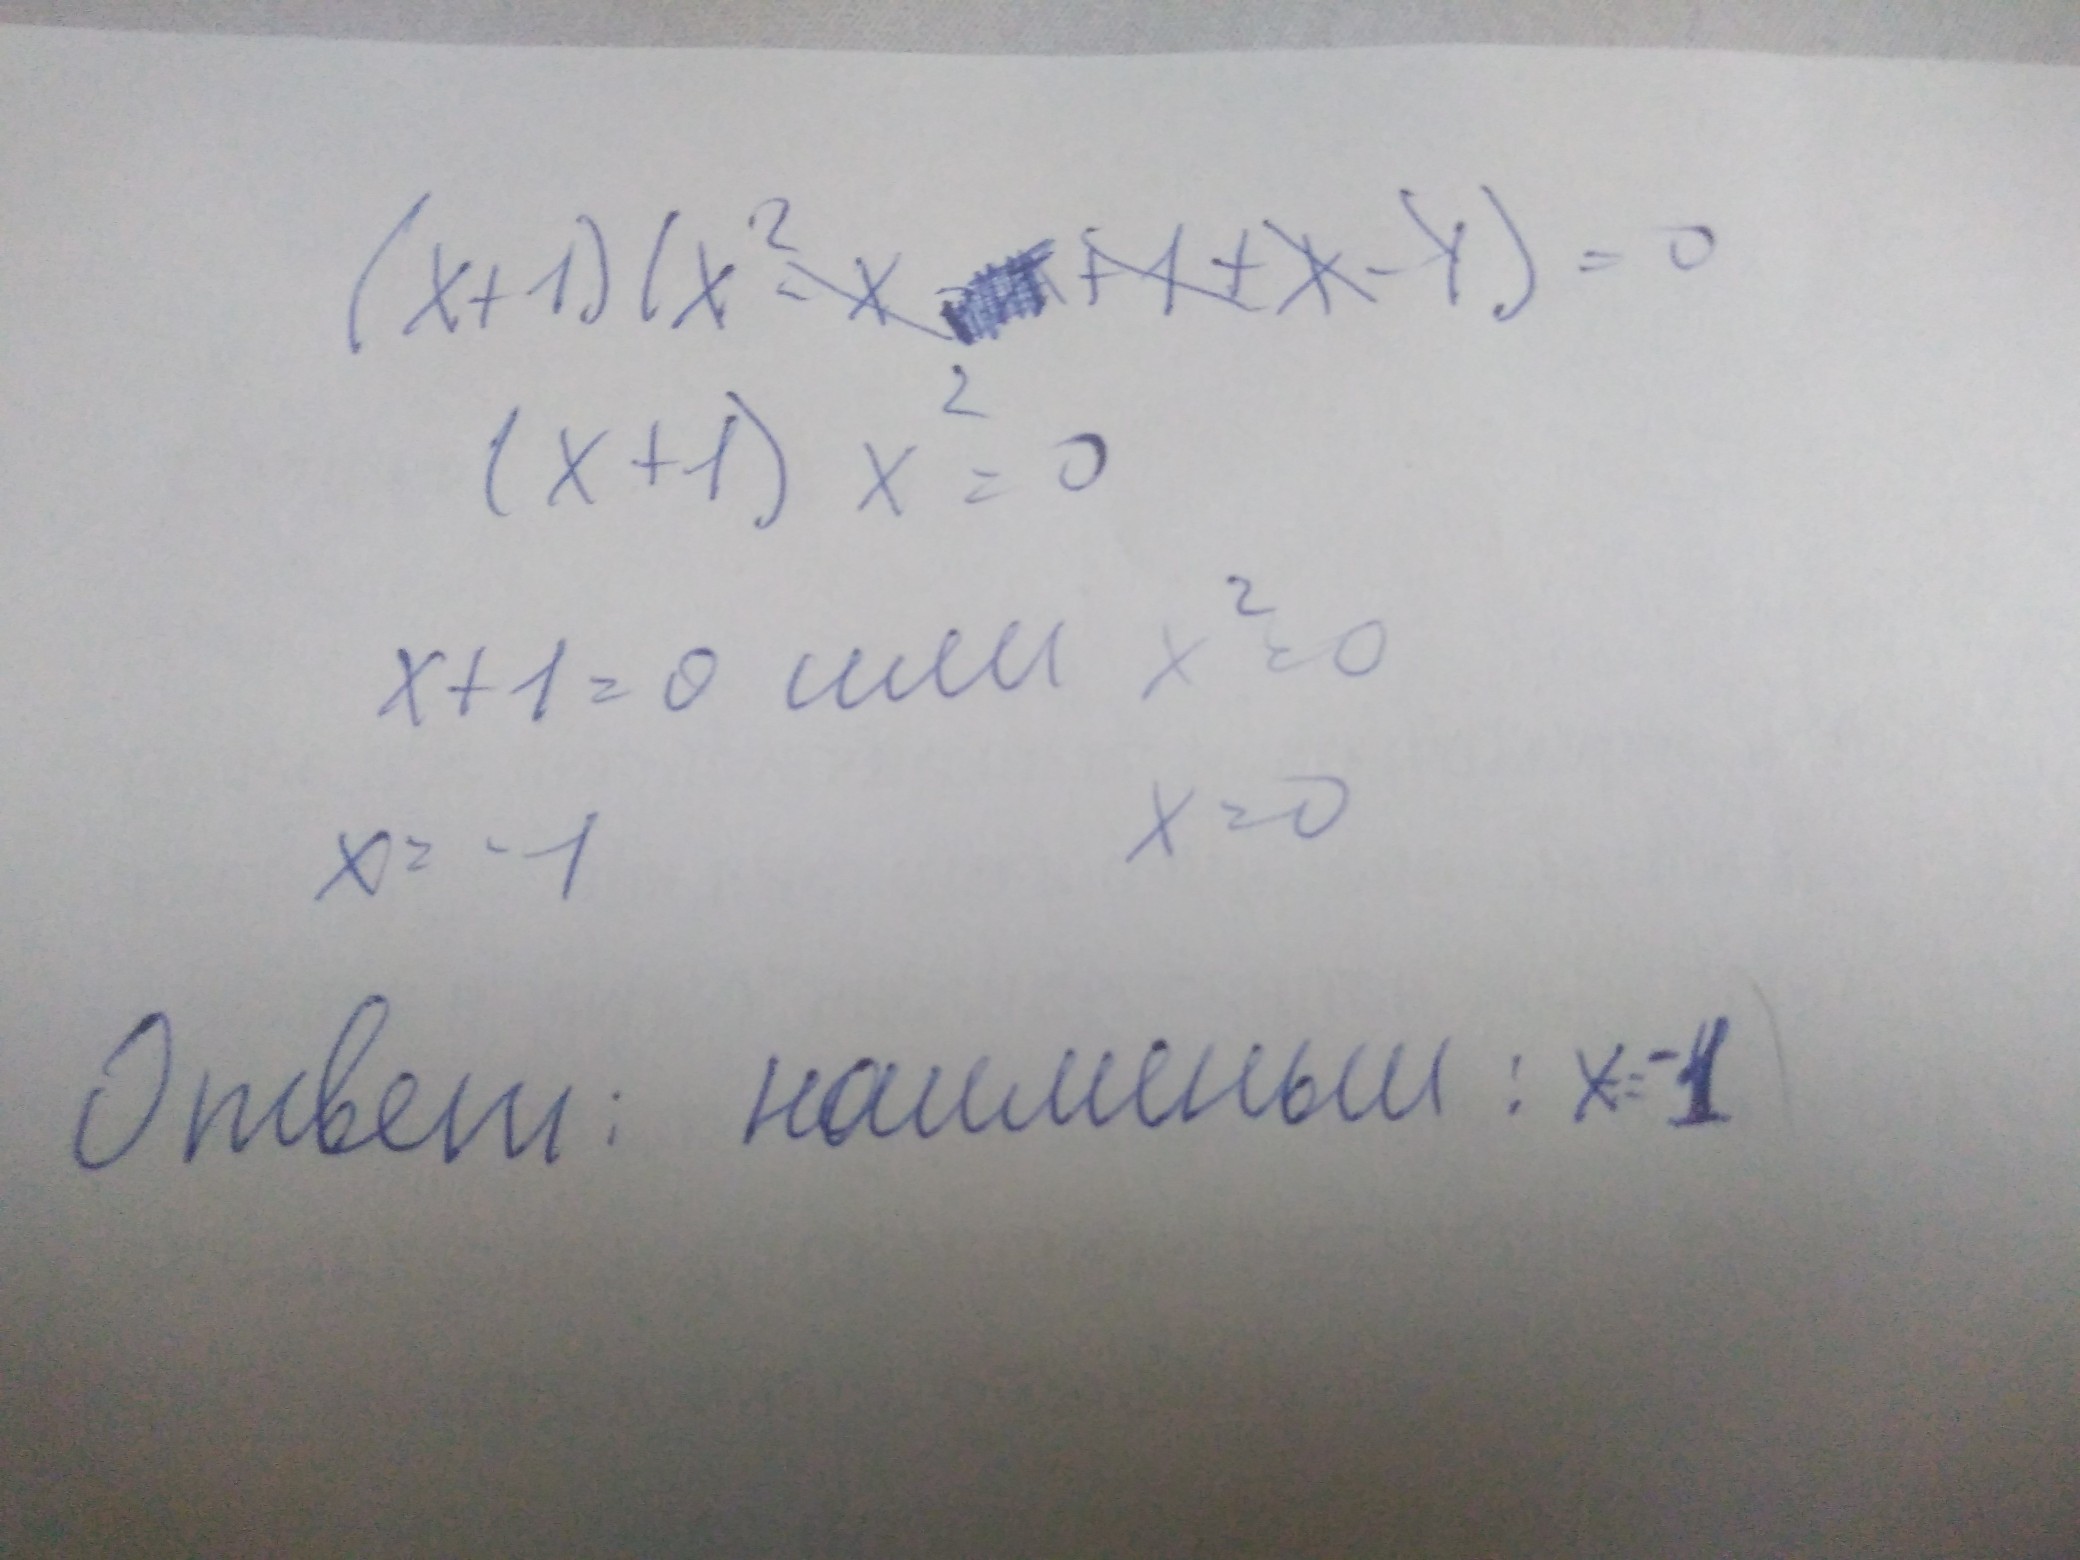 (x+1)(x²-x+1+x-1)=0
(x+1) x²=0
x+1=0 или x²=0
x=-1 x=0
Ответ: наименьш: x=-1